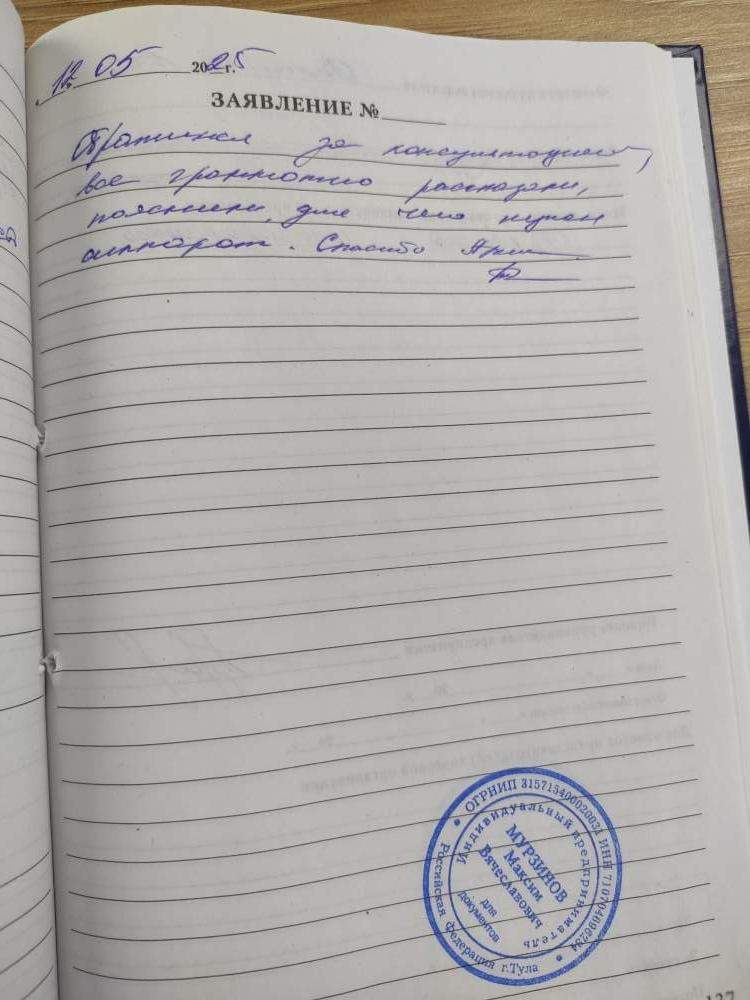 12 05 2025 г.
ЗАЯВЛЕНИЕ № 
за консультацией,
все грамотно рассказали,
пояснили, для чего нужен
аппарат. Спасибо
ОГРНИП 315715400020034 ИНН 710704696234
Индивидуальный предприниматель
МУРЗИНОВ
Максим
Вячеславович
для
документов
Российская Федерация г.Тула